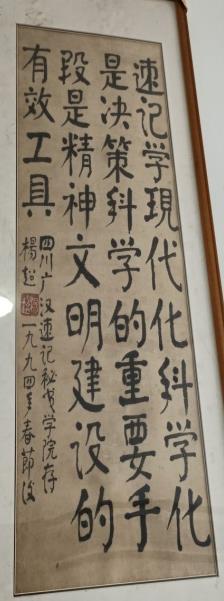 速记学現代化科学化
是决策科学的重要手
段是精神文明建设的
有效工具
四川广汉速记秘书学院存
楊超 一九九四年春節後